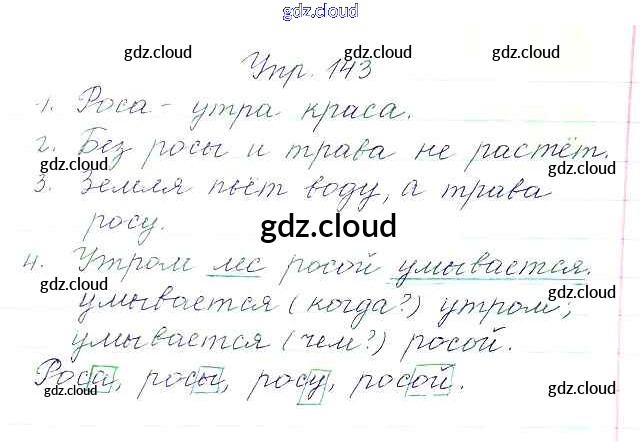 gdz.cloud
gdz.cloud gdz.cloud
Упр. 143
1. Роса - утра краса.
gdz.cloud gdz.cloud
2. Без росы и трава не растёт.
gdz.cloud gdz.cloud
3. Земля пьёт воду, а трава
росу.
gdz.cloud
4. Утром лес росой умывается.
gdz.cloud gdz.cloud
умывается (когда?) утром;
умывается (чем?) росой.
gdz.cloud gdz.cloud
Роса, росы, росу, росой.
gdz.cloud gdz.cloud